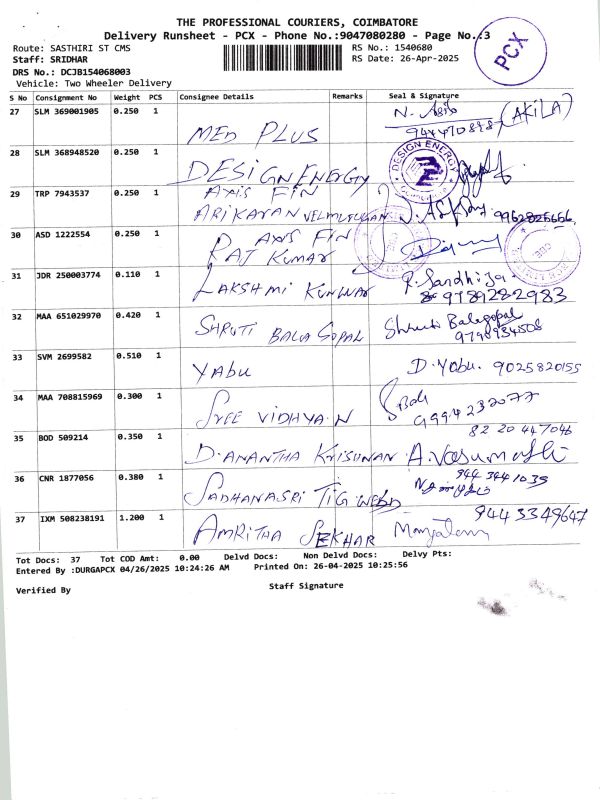 THE PROFESSIONAL COURIERS, COIMBATORE
Delivery Runsheet - PCX - Phone No.:9047080280 - Page No.:3
PCX
Route: SASTHIRI ST CMS
RS No.: 1540680
Staff: SRIDHAR
RS Date: 26-Apr-2025
DRS No.: DCJB154068003
Vehicle: Two Wheeler Delivery
S No Consignment No Weight PCS Consignee Details Remarks Seal & Signature
27 SLM 369001905 0.250 1 MED PLUS (AKILA)
28 SLM 368948520 0.250 1 DESIGN ENERGY DESIGN ENERGY
29 TRP 7943537 0.250 1 AXIS FIN
ARIKARAN VELMURUGAN 9962825656
30 ASD 1222554 0.250 1 AXIS FIN
RAJ KUMAR
31 JDR 250003774 0.110 1 LAKSHMI KUNWAR R. Sandhiya
9789282983
32 MAA 651029970 0.420 1 SHRUTI BALA GOPAL Shruti Balagopal
33 SVM 2699582 0.510 1 YABU D. Yabu. 9025820155
34 MAA 708815969 0.300 1 SREE VIDHYA N Bali
9994232077
35 BOD 509214 0.350 1 D. ANANTHA KRISHNAN 82 20 447046
36 CNR 1877056 0.380 1 SADHANASRI TIG WELD 944 3441039
37 IXM 508238191 1.200 1 AMRITHA SEKHAR 9443349647
Tot Docs: 37 Tot COD Amt: 0.00 Delvd Docs: Non Delvd Docs: Delvy Pts:
Entered By :DURGAPCX 04/26/2025 10:24:26 AM Printed On: 26-04-2025 10:25:56
Verified By
Staff Signature